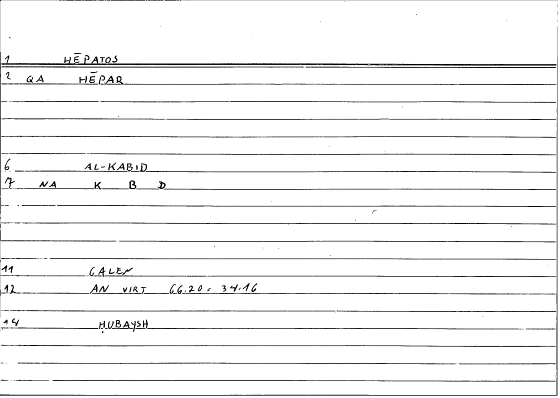 1 HĒPATOS
2 QA HĒPAR
6 AL-KABID
7 NA K B D
11 GALEN
12 AN VIRT 66.20 = 34.16
14 ḤUBAYSH